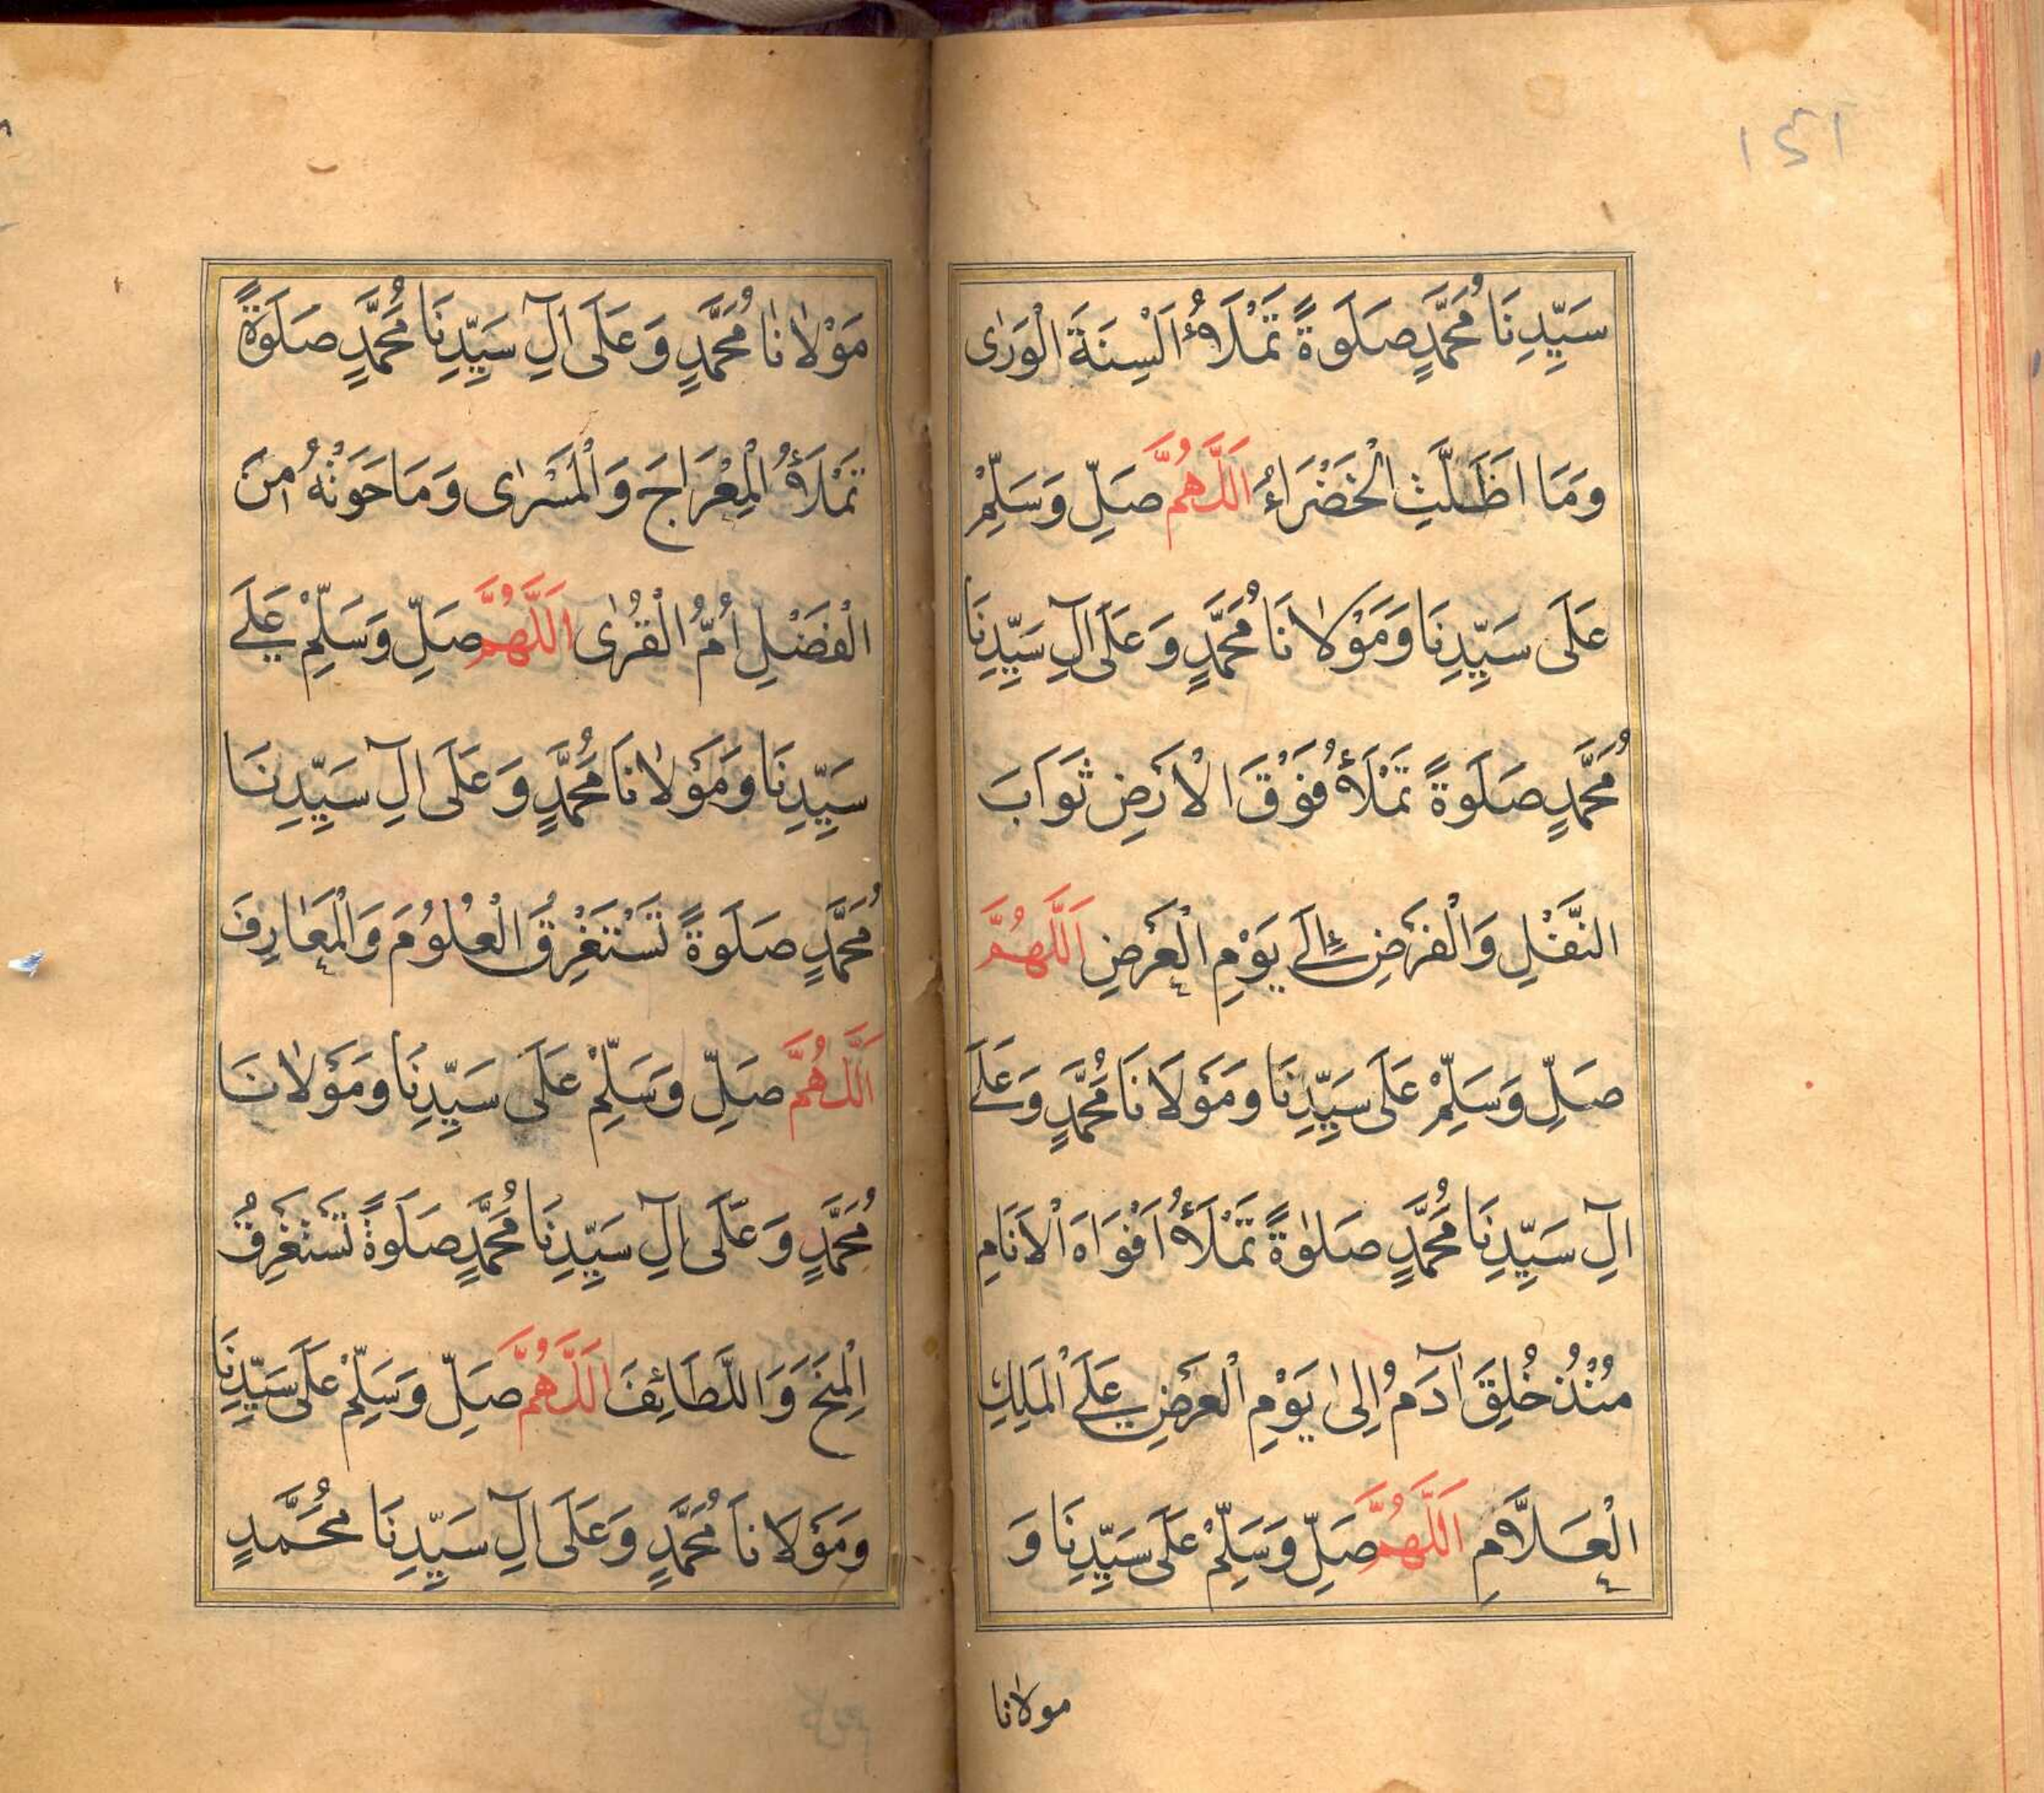 ١٤١
سَيِّدِنَا مُحَمَّدٍ صَلَوةً تَمْلَاُ اَلْسِنَةَ الْوَرٰى
وَمَا اَظَلَّتِ الْخَضْرَاءُ اَللّٰهُمَّ صَلِّ وَسَلِّمْ
عَلَى سَيِّدِنَا وَمَوْلَانَا مُحَمَّدٍ وَعَلَى اٰلِ سَيِّدِنَا
مُحَمَّدٍ صَلَوةً تَمْلَأُ فَوْقَ الْاَرَضِ ثَوَابَ
النَّفْلِ وَالْفَرَضِ اِلَى يَوْمِ الْعَرَضِ اَللّٰهُمَّ
صَلِّ وَسَلِّمْ عَلَى سَيِّدِنَا وَمَوْلَانَا مُحَمَّدٍ وَعَلَى
اٰلِ سَيِّدِنَا مُحَمَّدٍ صَلٰوةً تَمْلَأُ اَفْوَاهَ الْاَنَامِ
مُنْذُ خُلِقَ اٰدَمُ اِلٰى يَوْمِ الْعَرَضِ عَلَى الْمَلِكِ
الْعَلَّامِ اَللّٰهُمَّ صَلِّ وَسَلِّمْ عَلَى سَيِّدِنَا وَ
مولانا
مَوْلَانَا مُحَمَّدٍ وَعَلَى اٰلِ سَيِّدِنَا مُحَمَّدٍ صَلَوةً
تَمْلَأُ الْمِعْرَاجَ وَالْمَسْرٰى وَمَا حَوَتْهُ مِنَ
الْفَضْلِ اُمُّ الْقُرٰى اَللّٰهُمَّ صَلِّ وَسَلِّمْ عَلَى
سَيِّدِنَا وَمَوْلَانَا مُحَمَّدٍ وَعَلَى اٰلِ سَيِّدِنَا
مُحَمَّدٍ صَلَوةً تَسْتَغْرِقُ الْعُلُوُمَ وَالْمَعَارِفَ
اَللّٰهُمَّ صَلِّ وَسَلِّمْ عَلَى سَيِّدِنَا وَمَوْلَانَا
مُحَمَّدٍ وَعَلَى اٰلِ سَيِّدِنَا مُحَمَّدٍ صَلَوةً تَسْتَغْرِقُ
الْمِنَحَ وَاللَّطَائِفَ اَللّٰهُمَّ صَلِّ وَسَلِّمْ عَلَى سَيِّدِنَا
وَمَوْلَانَا مُحَمَّدٍ وَعَلَى اٰلِ سَيِّدِنَا مُحَمَّدٍ